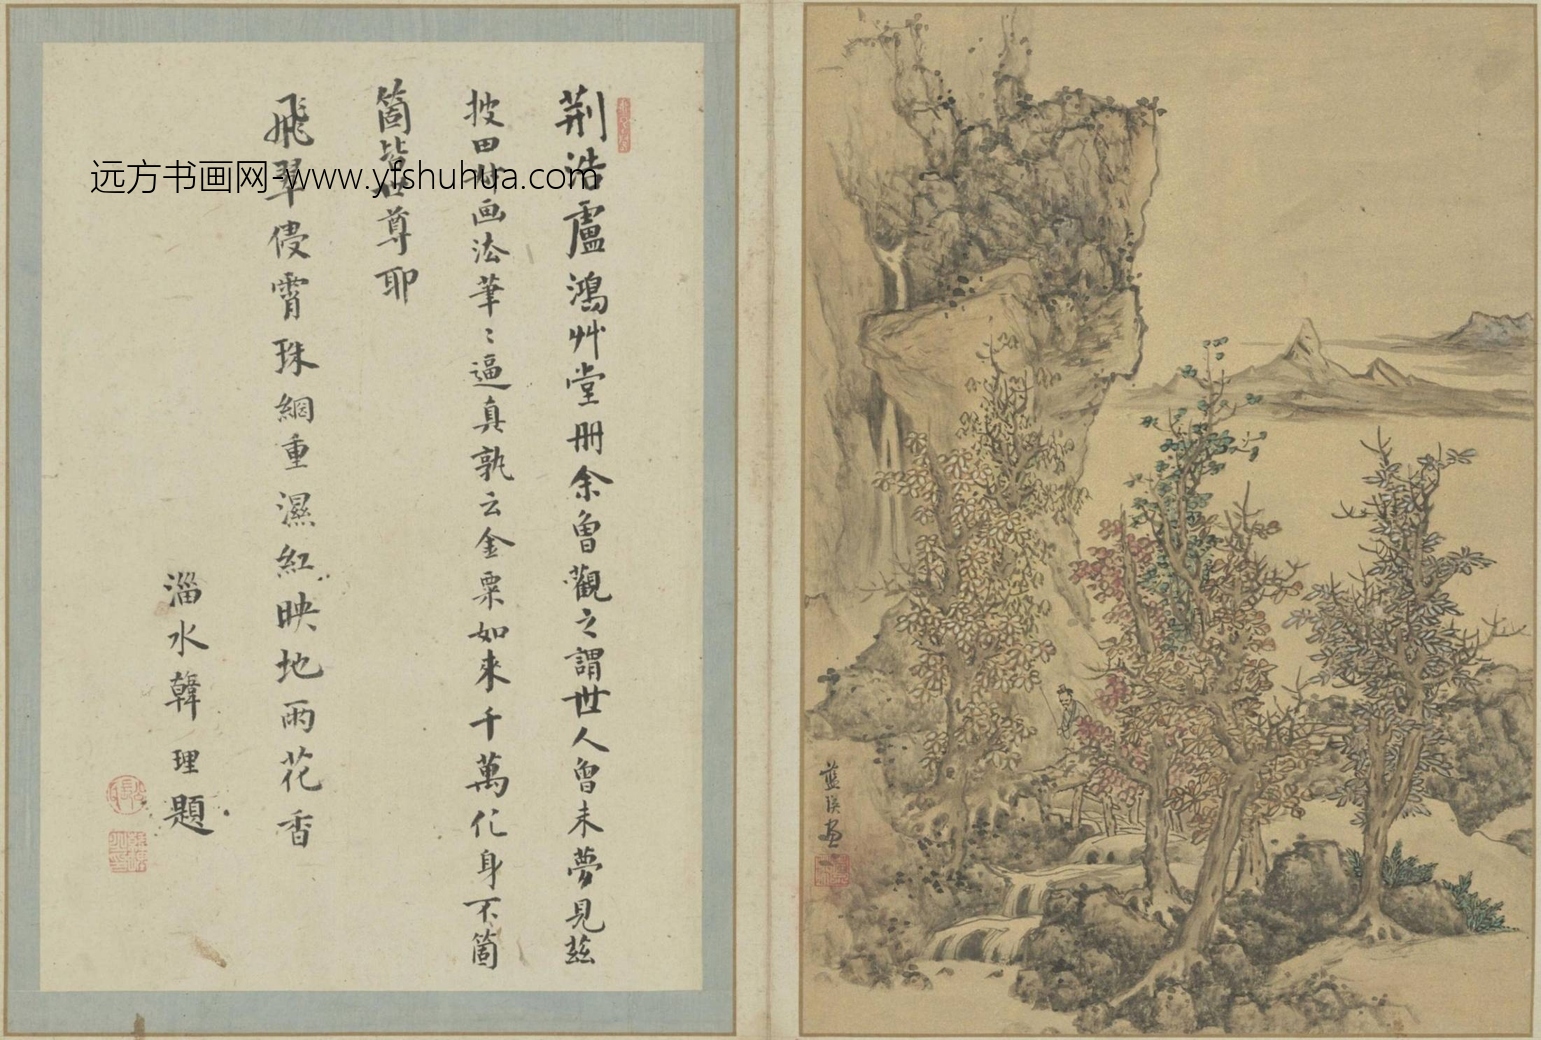 荆浩盧鴻艸堂冊余曾觀之謂世人曾未夢見茲
披田叔画法筆〻逼真孰云金粟如來千萬化身不箇
箇皆世尊耶
飛翠侵霄珠網重濕紅映地雨花香
淄水韓理題
藍瑛画
远方书画网-www.yfshuhua.com